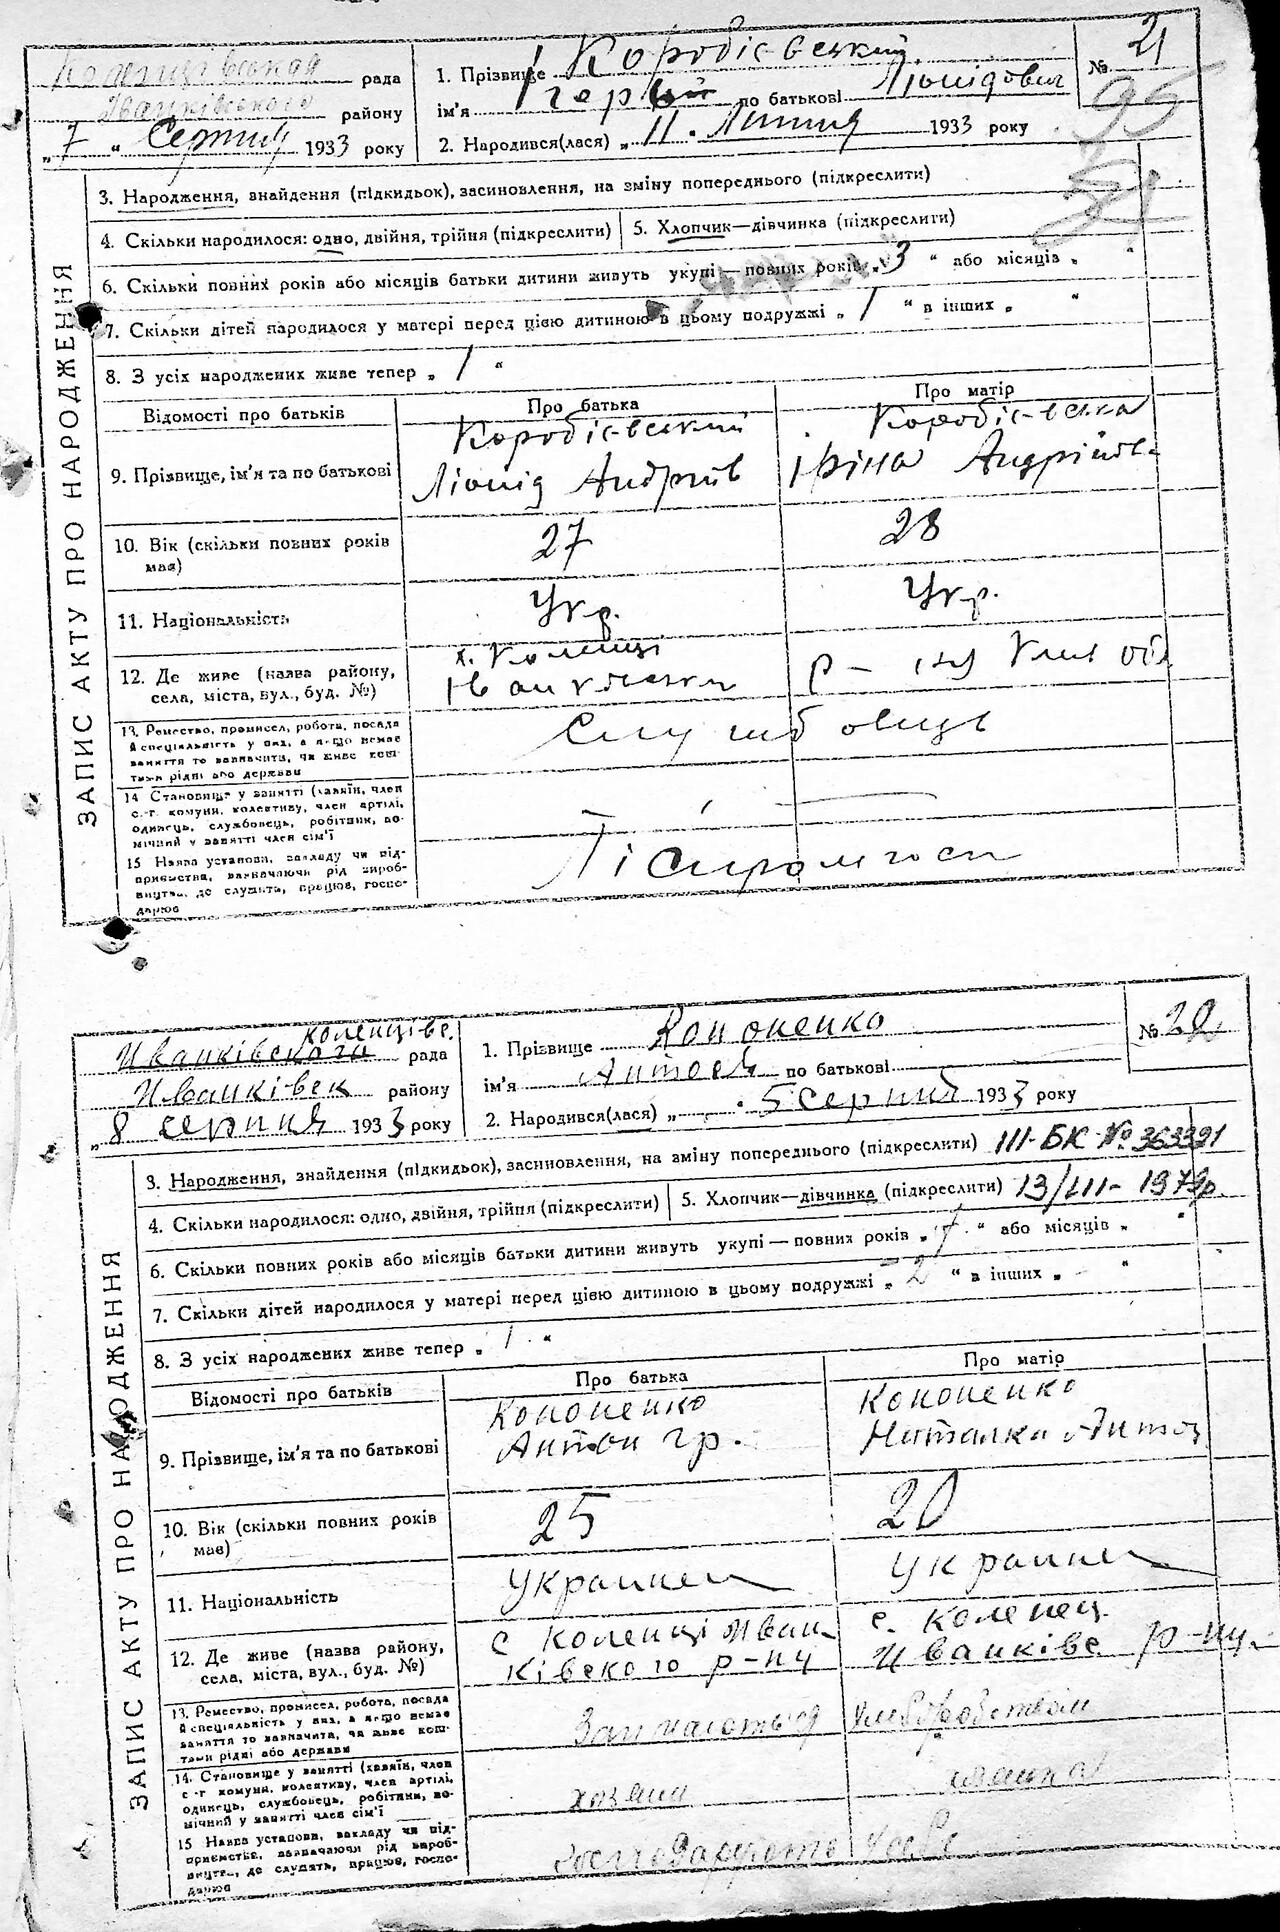 Коленцівська рада
Іванківського району
„ 7 " Серпня 1933 року
1. Прізвище Коробієвський
ім'я по батькові Ліонідович
2. Народився(лася) „ 11 . Липня 1933 року
№ 21
95
ЗАПИС АКТУ ПРО НАРОДЖЕННЯ
3. Народження, знайдення (підкидьок), засиновлення, на зміну попереднього (підкреслити)
4. Скільки народилося: одно, двійня, трійня (підкреслити)
5. Хлопчик—дівчинка (підкреслити)
6. Скільки повних років або місяців батьки дитини живуть укупі — повних років „ 3 " або місяців „ "
7. Скільки дітей народилося у матері перед цією дитиною в цьому подружжі „ 1 " в інших „ "
8. З усіх народжених живе тепер „ 1 "
Відомості про батьків
Про батька
Про матір
9. Прізвище, ім'я та по батькові
Коробієвський
Ліонід Андріїв
Коробієвська
Іріна Андріївн
10. Вік (скільки повних років має)
27
28
11. Національність
Укр.
Укр.
12. Де живе (назва району, села, міста, вул., буд. №)
с. Коленці
Іванківськ
р-ну Київ обл
13. Ремество, промисел, робота, посада й спеціяльність у них, а якщо немає заняття то зазначити, чи живе коштами рідні або держави
Службовець
14 Становище у занятті (хазяїн, член с.-г. комуни, колективу, член артілі, одинець, службовець, робітник, помічний у занятті член сім'ї
15 Назва установи, закладу чи підприємства, зазначаючи рід виробництва, де служить, працює, господарює
Ліспромгосп
Коленцівс.
Иванківського рада
Иванківск району
„ 8 серпня 1933 року
1. Прізвище Кононенко
ім'я по батькові
2. Народився(лася) „ 5 серпня 1933 року
№ 22
ЗАПИС АКТУ ПРО НАРОДЖЕННЯ
3. Народження, знайдення (підкидьок), засиновлення, на зміну попереднього (підкреслити)
III-БК № 363391
4. Скільки народилося: одно, двійня, трійня (підкреслити)
5. Хлопчик—дівчинка (підкреслити)
13/III-1979р.
6. Скільки повних років або місяців батьки дитини живуть укупі — повних років „ 7 " або місяців „ "
7. Скільки дітей народилося у матері перед цією дитиною в цьому подружжі „ 2 " в інших „ - "
8. З усіх народжених живе тепер „ 1 "
Відомості про батьків
Про батька
Про матір
9. Прізвище, ім'я та по батькові
Кононенко
Антон гр.
Кононенко
Наталка Антон
10. Вік (скільки повних років має)
25
20
11. Національність
Украинец
Украинец
12. Де живе (назва району, села, міста, вул., буд. №)
с Коленці Иван-
ківского р-ну
с. Коленец
Иванківс. р-ну.
13. Ремество, промисел, робота, посада й спеціяльність у них, а якщо немає заняття то зазначити, чи живе коштами рідні або держави
Займаються Хлеборобством
14. Становище у занятті (хазяїн, член с.-г. комуни, колективу, член артілі, одинець, службовець, робітник, помічний у занятті член сім'ї
хозяин
15 Назва установи, закладу чи підприємства, зазначаючи рід виробництва, де служить, працює, господарює